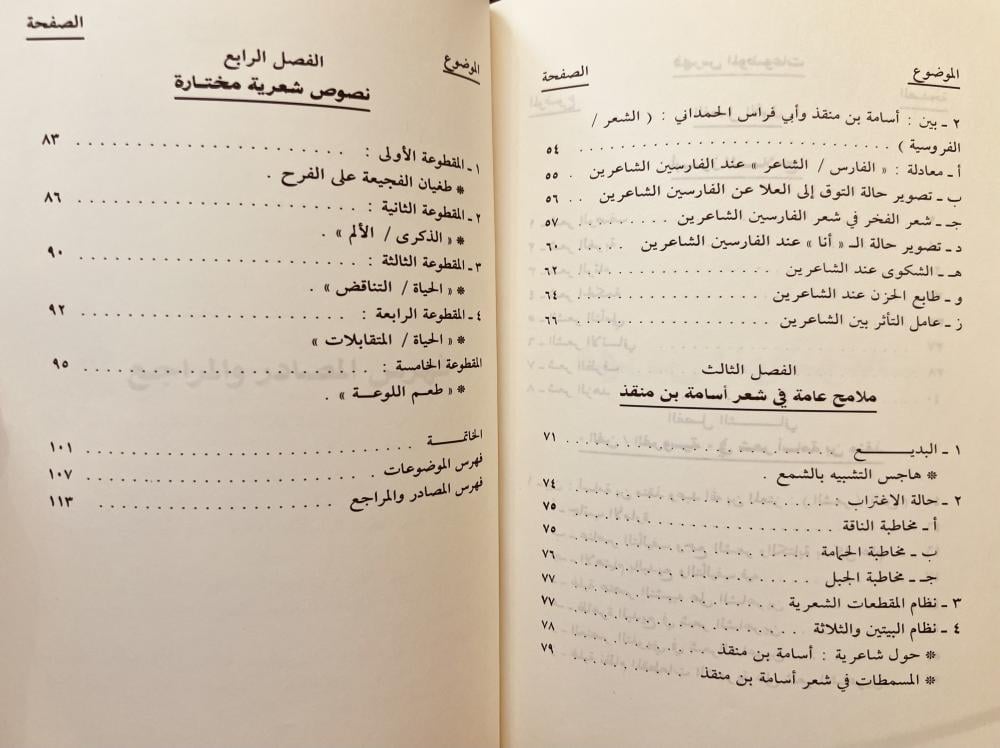 الموضوع الصفحة
٢ ـ بين : أسامة بن منقذ وأبي فراس الحمداني : ( الشعر /
الفروسية ) . . . . . . . . . . . . . . . . . . . . ٥٤
أ ـ معادلة : « الفارس / الشاعر » عند الفارسين الشاعرين . ٥٥
ب ـ تصوير حالة التوق إلى العلا عن الفارسين الشاعرين . . ٥٦
جـ ـ شعر الفخر في شعر الفارسين الشاعرين . . . . . . . ٥٧
د ـ تصوير حالة الـ « أنا » عند الفارسين الشاعرين . . . . ٦٠
هـ ـ الشكوى عند الشاعرين . . . . . . . . . . . . . . ٦٢
و ـ طابع الحزن عند الشاعرين . . . . . . . . . . . . . ٦٤
ز ـ عامل التأثر بين الشاعرين . . . . . . . . . . . . . ٦٦
الفصل الثالث
ملامح عامة في شعر أسامة بن منقذ
١ ـ البديـــــــع . . . . . . . . . . . . . . . . . . . . ٧١
* هاجس التشبيه بالشمع .
٢ ـ حالة الاغتراب : . . . . . . . . . . . . . . . . . . ٧٤
أ ـ مخاطبة الناقة . . . . . . . . . . . . . . . . . . ٧٥
ب ـ مخاطبة الحمامة . . . . . . . . . . . . . . . . . ٧٥
جـ ـ مخاطبة الجبل . . . . . . . . . . . . . . . . . ٧٦
٣ ـ نظام المقطعات الشعرية . . . . . . . . . . . . . . ٧٧
٤ ـ نظام البيتين والثلاثة . . . . . . . . . . . . . . . ٧٧
* حول شاعرية : أسامة بن منقذ . . . . . . . . . . . ٧٨
* المسمطات في شعر أسامة بن منقذ . . . . . . . . . ٧٩
الموضوع الصفحة
الفصل الرابع
نصوص شعرية مختـارة
١ ـ المقطوعة الأولى : . . . . . . . . . . . . . . . . . ٨٣
* طغيان الفجيعة على الفرح .
٢ ـ المقطوعة الثانية : . . . . . . . . . . . . . . . . . ٨٦
* « الذكرى / الألم » .
٣ ـ المقطوعة الثالثة : . . . . . . . . . . . . . . . . . ٩٠
* « الحياة / التناقض » .
٤ ـ المقطوعة الرابعة : . . . . . . . . . . . . . . . . . ٩٢
* « الحياة / المتقابلات »
المقطوعة الخامسة : . . . . . . . . . . . . . . . . . . ٩٥
* « طعـم اللوعـــة » .
الخاتمـــــة . . . . . . . . . . . . . . . . . . . . . . ١٠١
فهرس الموضوعات . . . . . . . . . . . . . . . . . . . ١٠٧
فهرس المصادر والمراجع . . . . . . . . . . . . . . . . ١١٣